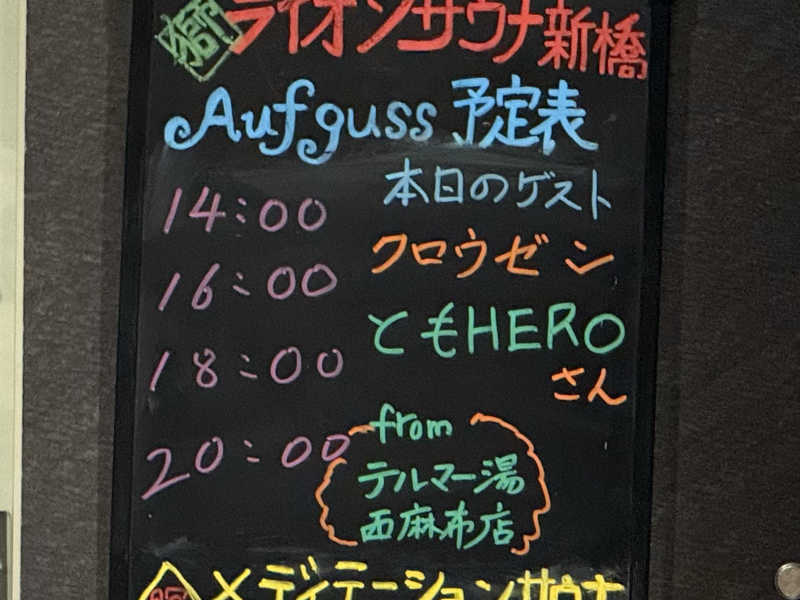 獅 ライオンサウナ新橋
Aufguss 予定表
本日のゲスト
14:00
クロウゼン
16:00
ともHERO
さん
18:00
20:00
from
テルマー湯
西麻布店
メディテーションサウナ